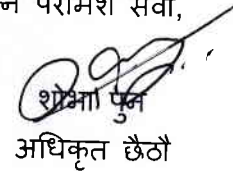 न परामर्श सेवा,
शोभा पुन
अधिकृत छैठौ